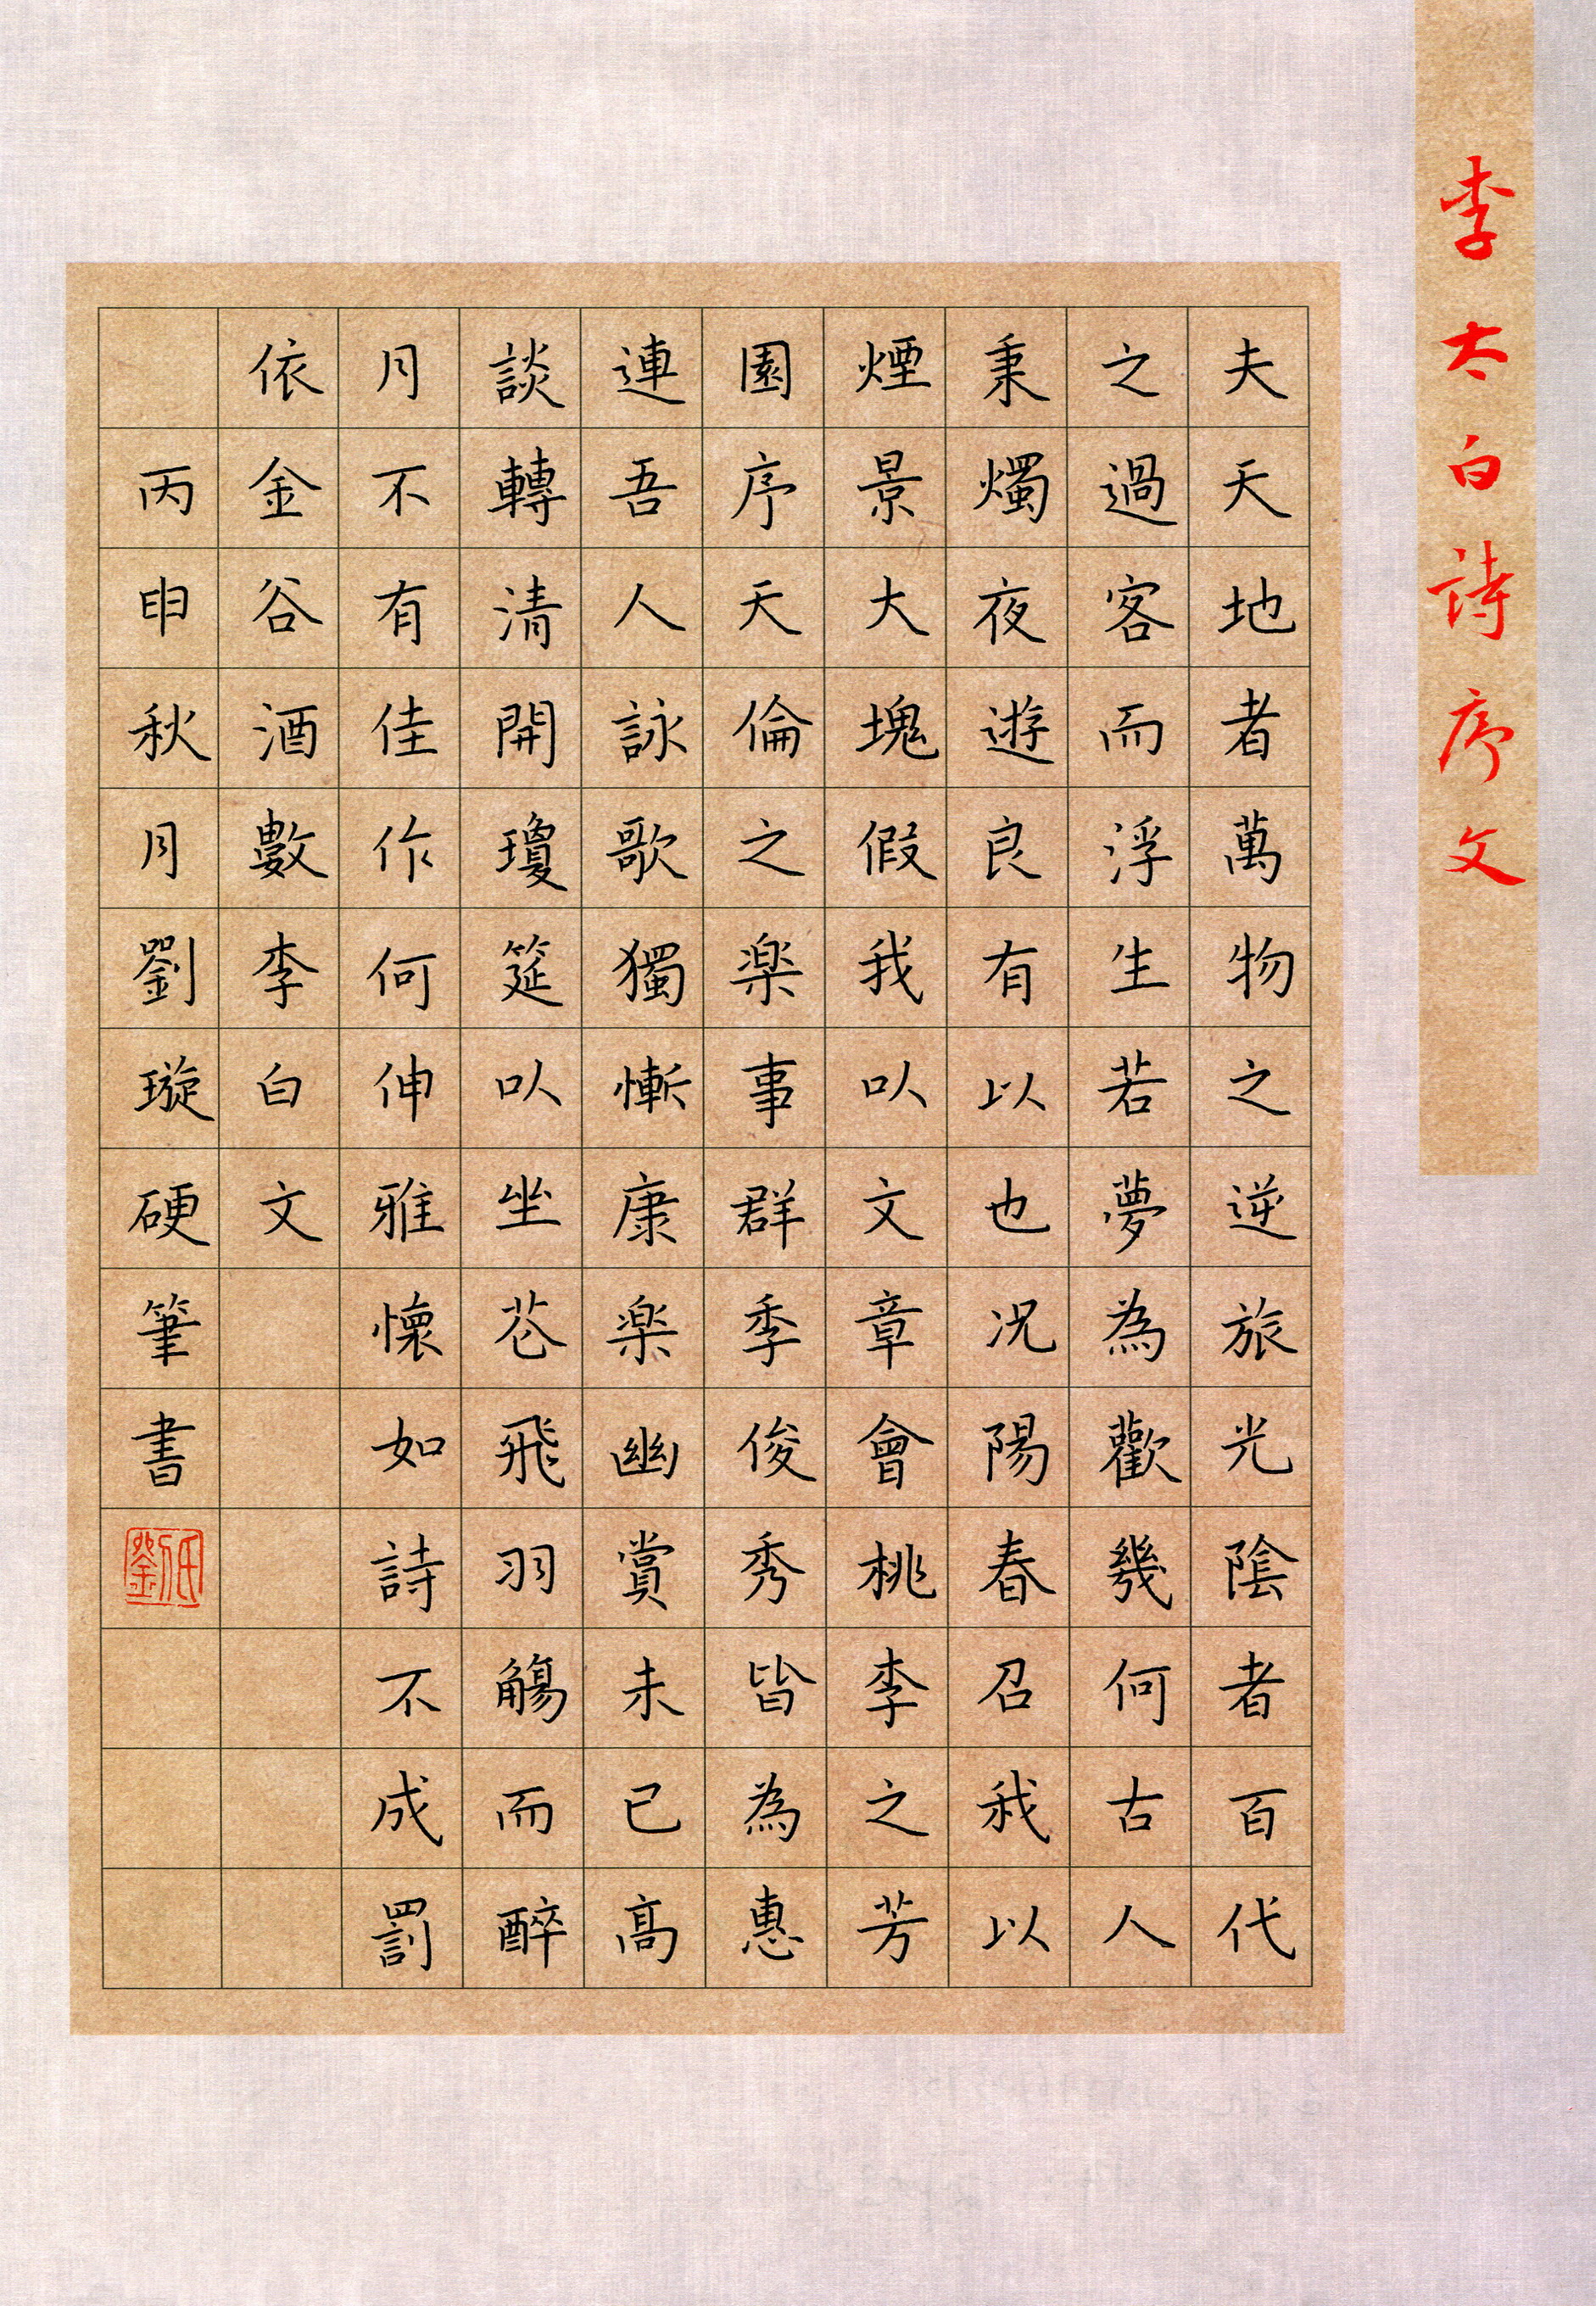 李太白詩序文
夫天地者萬物之逆旅光陰者百代
之過客而浮生若夢為歡幾何古人
秉燭夜遊良有以也况陽春召我以
煙景大塊假我以文章會桃李之芳
園序天倫之楽事群季俊秀皆為惠
連吾人詠歌獨慚康楽幽賞未已高
談轉清開瓊筵以坐花飛羽觴而醉
月不有佳作何伸雅懷如詩不成罰
依金谷酒數李白文
丙申秋月劉璇硬筆書
劉氏